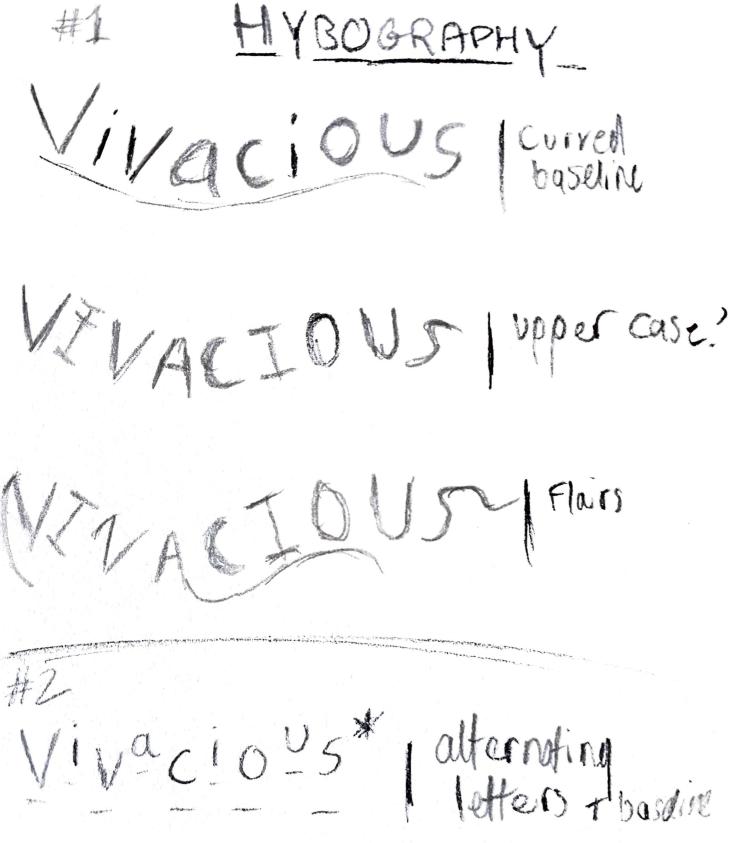 #1 HYBOGRAPHY_
Vivacious | curved
baseline
VIVACIOUS | upper case?
VIVACIOUS | Flairs
#2
Vivacious* | alternating
letters + baseline